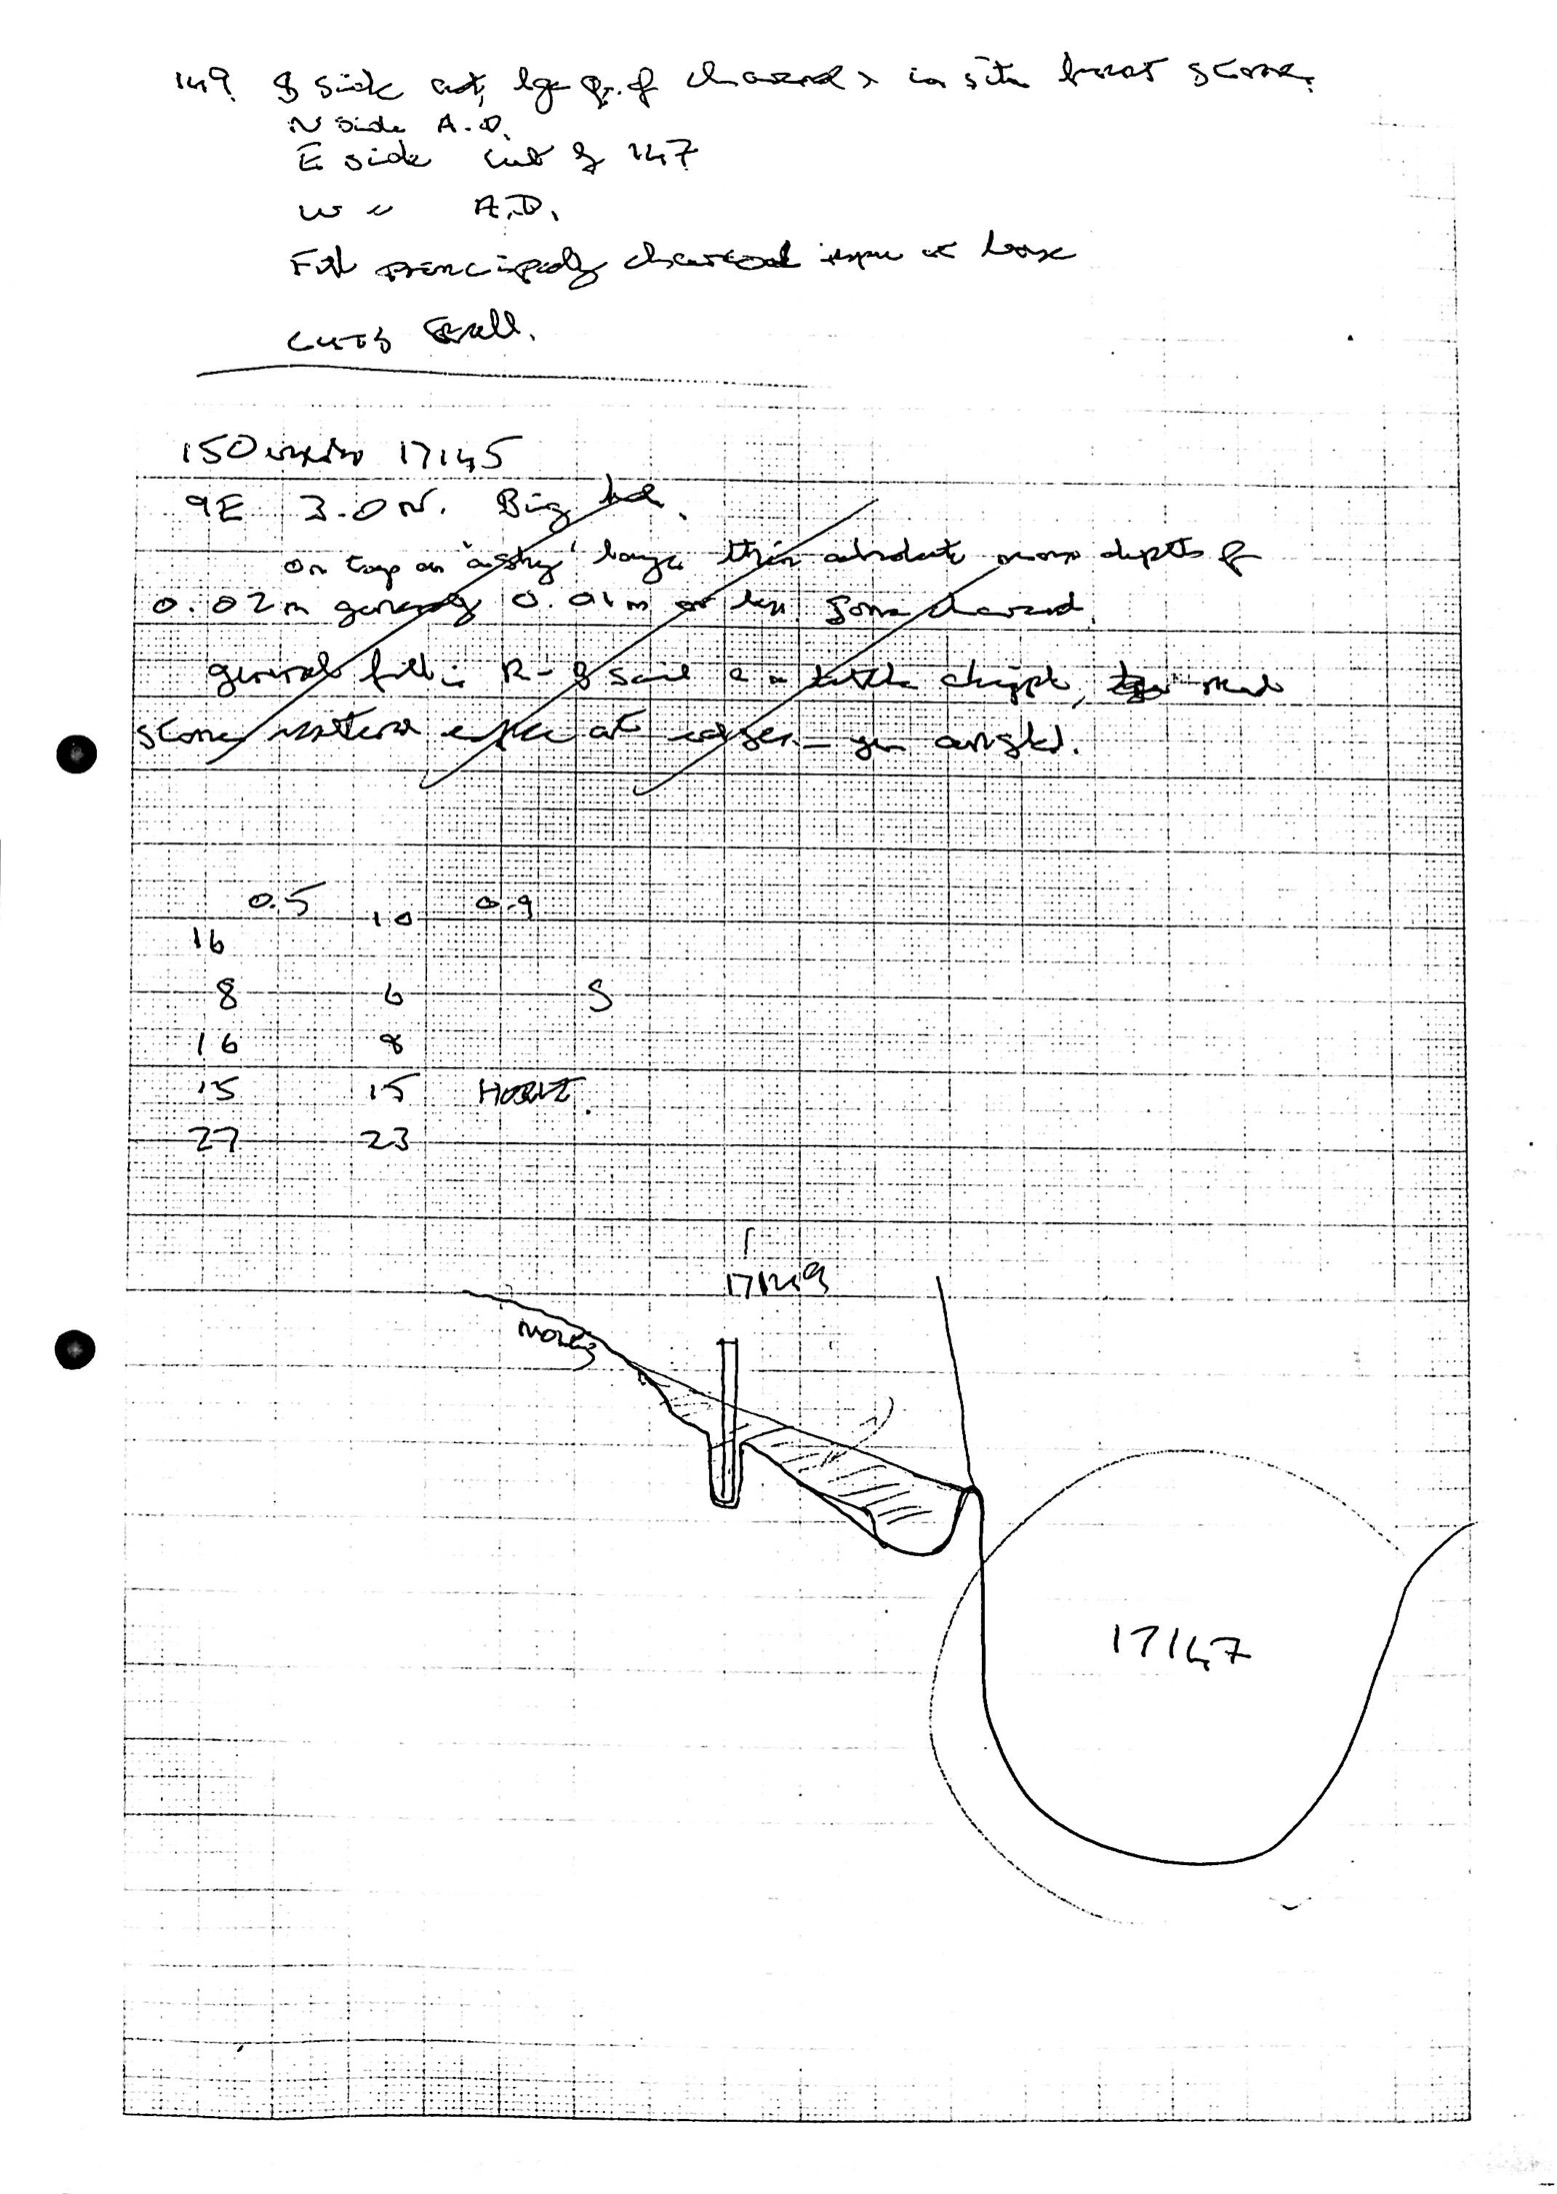 149. S side cut, lge qr. of charcoal & in situ burnt stone.
N side A.D.
E side cut by 147
W " A.D.
Fill principally charcoal espec at base
cuts small.
150 within 17145
9E 3.0N. Big hole.
On top an 'ashy' layer thin absolute max depth of
0.02m generally 0.01m or less. Some charcoal.
general fill: R-B soil a little chipple,
stone at edges - angled.
0.5 10 0.9
16
8 6 S
16 8
15 15 HORIZ.
27 23
17149
17147